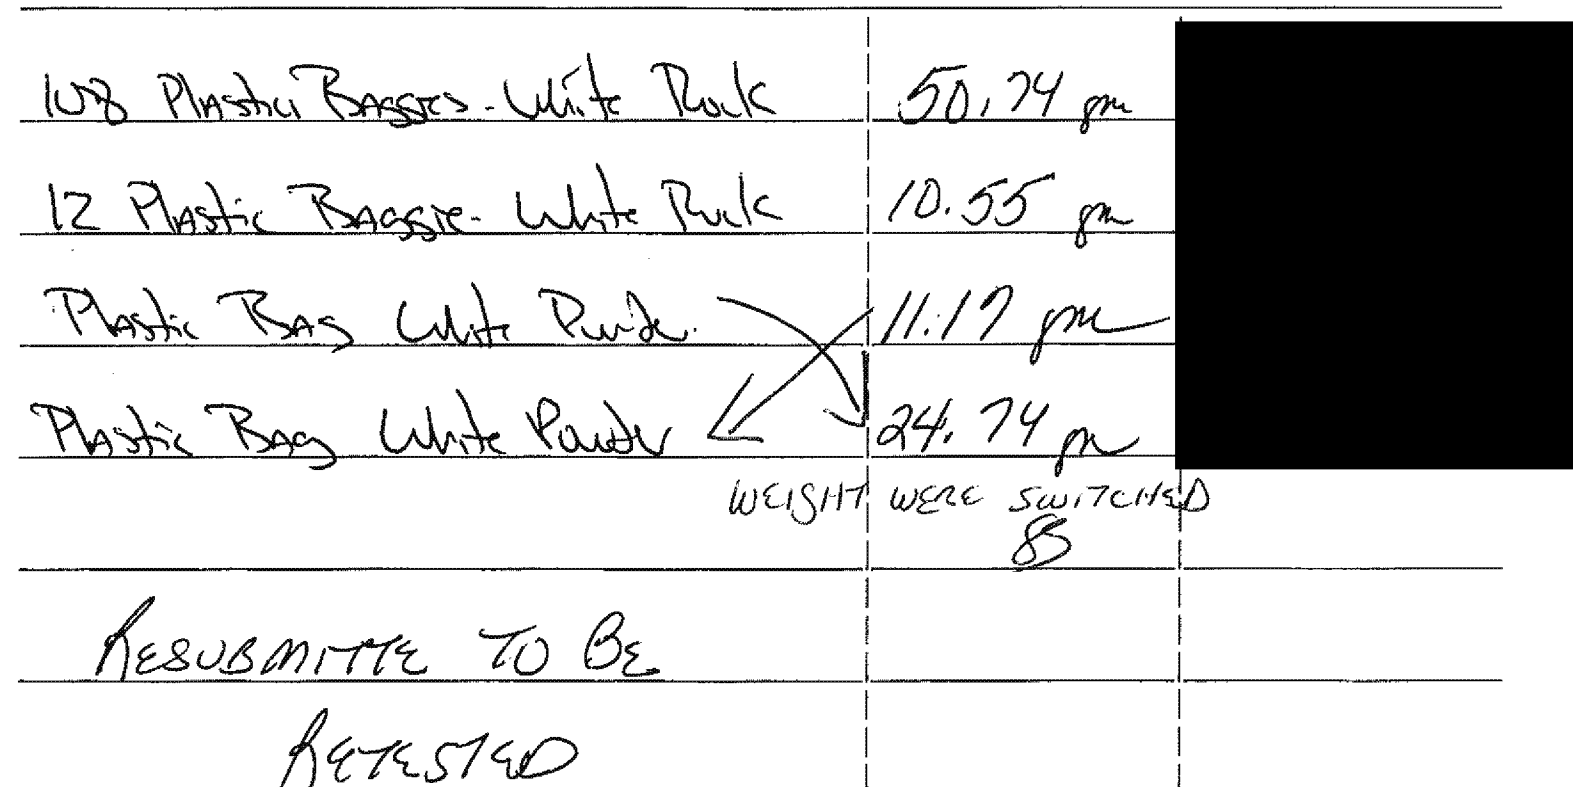 108 Plastic Baggies - White Rock 50.74 gm
12 Plastic Baggie - White Rock 10.55 gm
Plastic Bag White Powder 11.17 gm
Plastic Bag White Powder 24.74 gm
WEIGHT WERE SWITCHED
RESUBMITTE TO BE
RETESTED